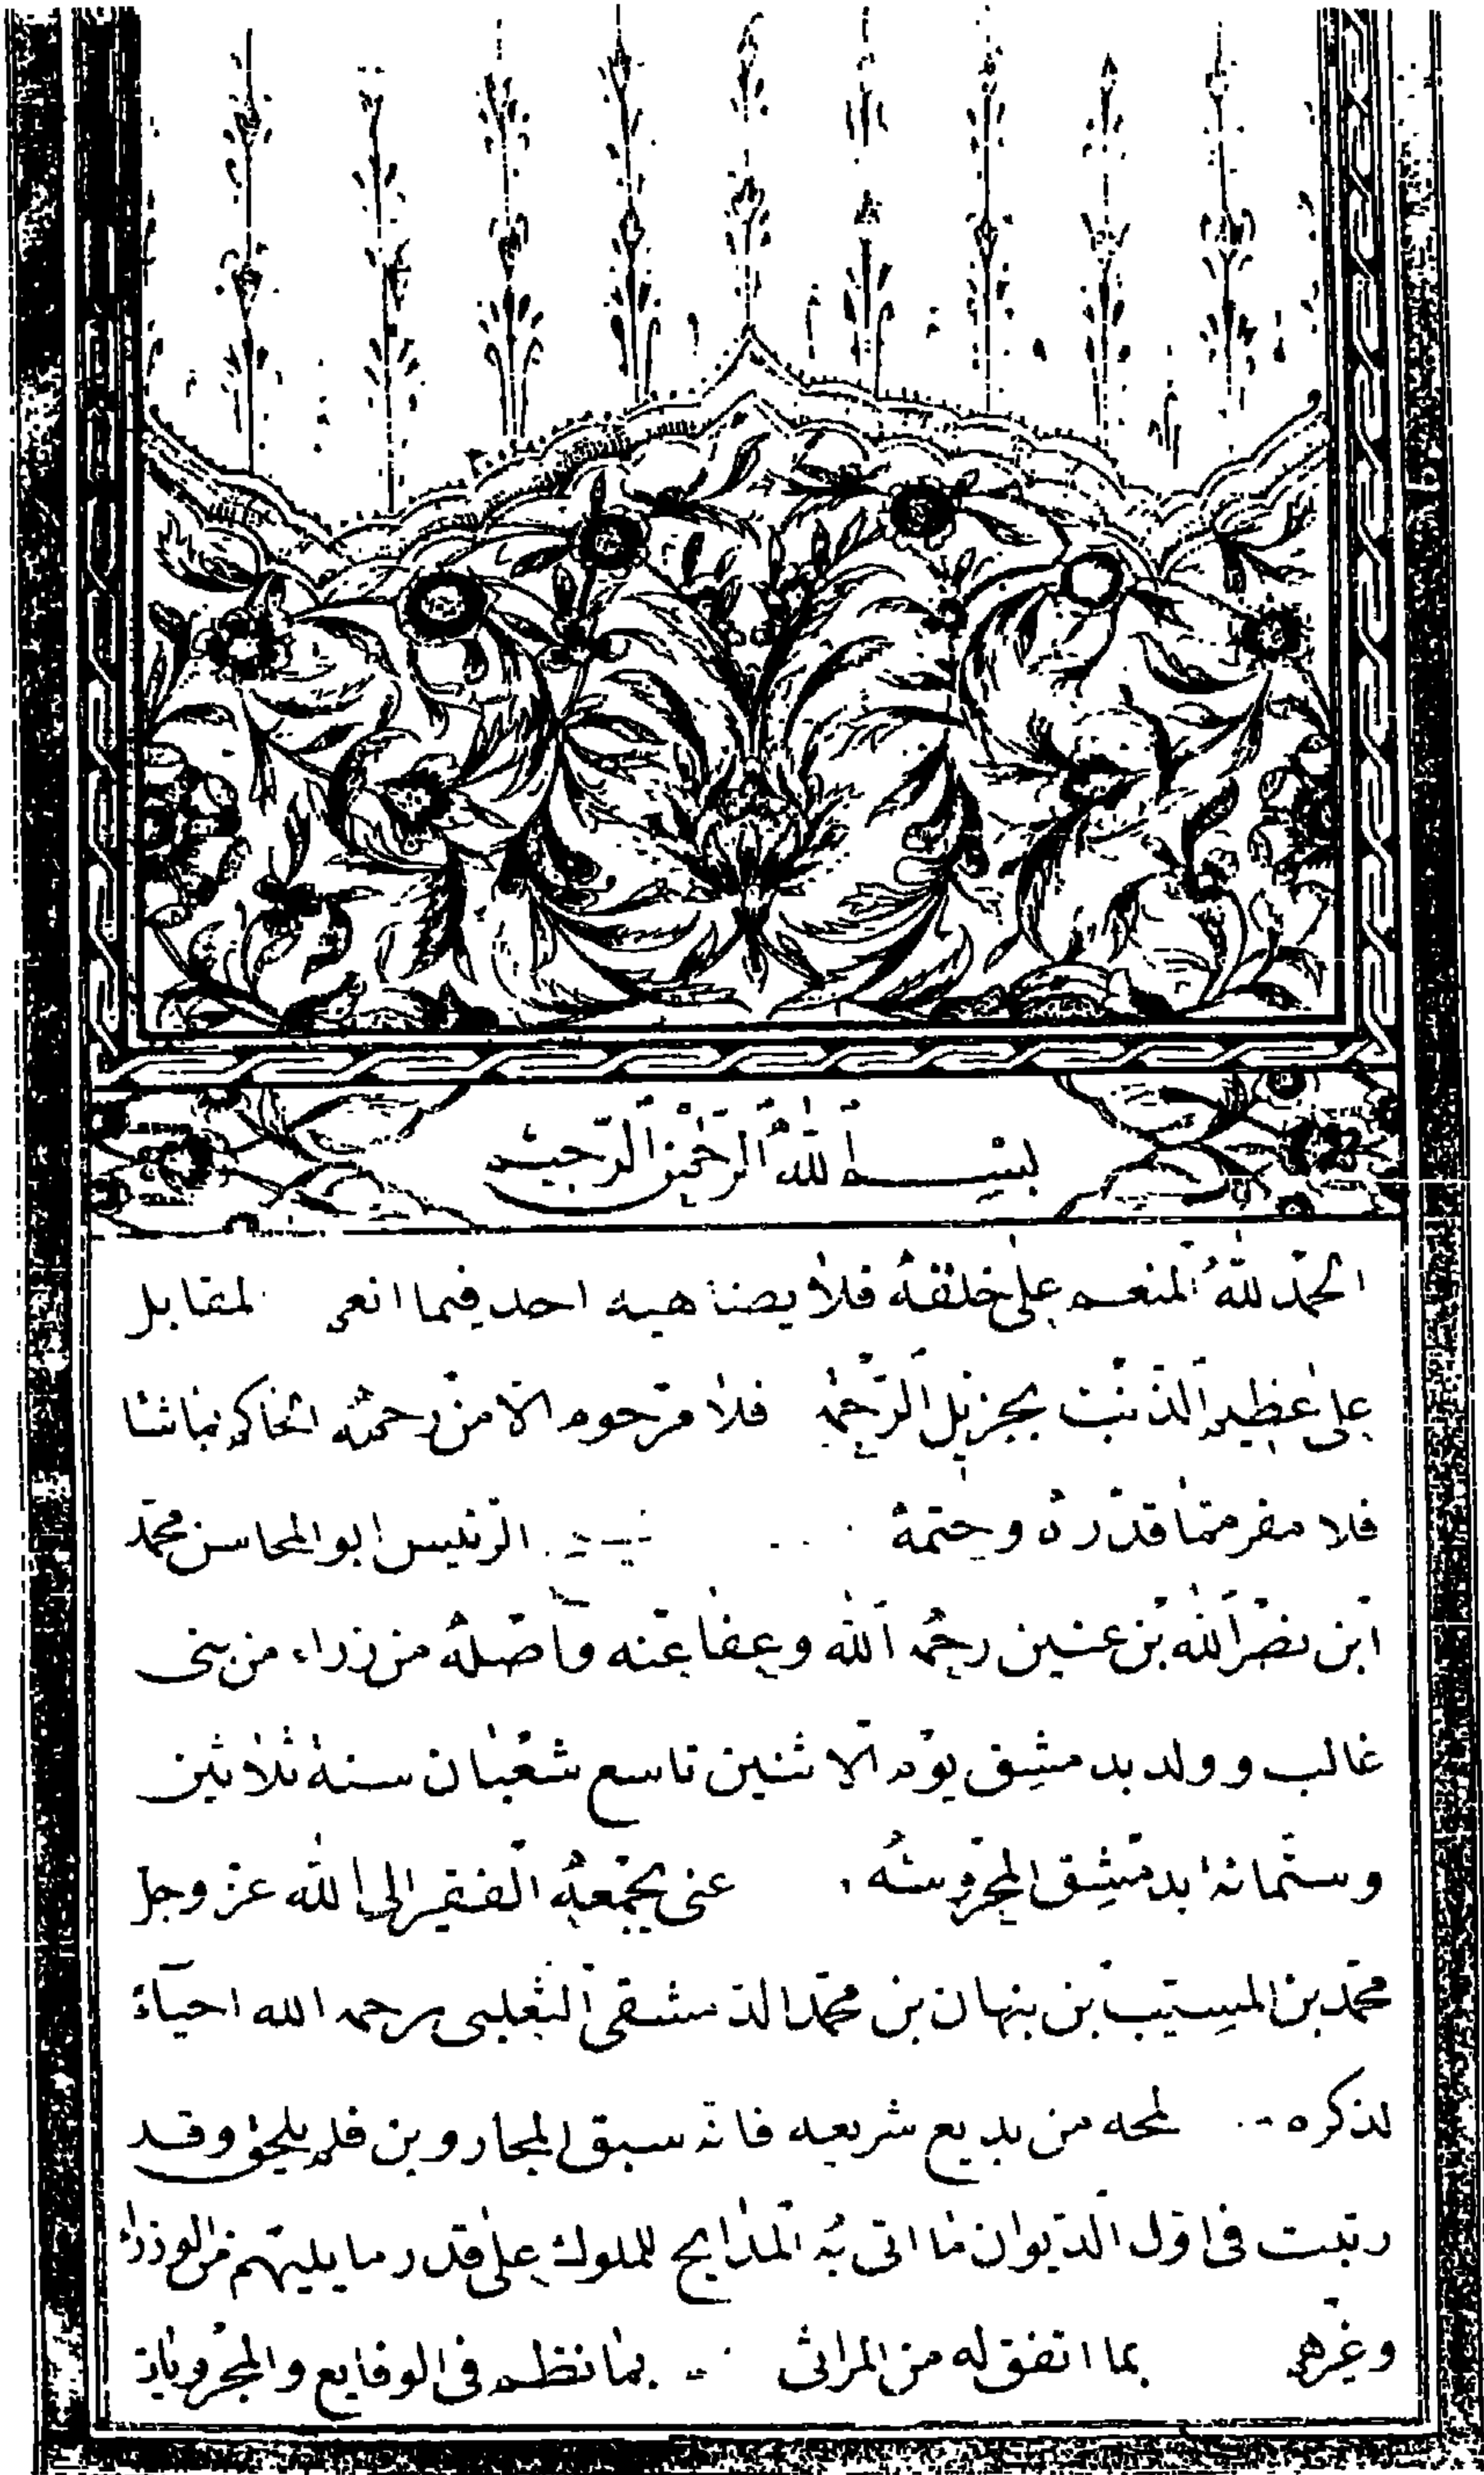 بسم الله الرحمن الرحيم
الحمد لله المنعم على خلقه فلا يضاهيه احد فيما انعم لمقابل
على عظيم الذنب بجزيل الرحمة فلا مرحوم الا من رحمته الحاكم بما شا
فلا مفر مما قدره وحتمه الرئيس ابو المحاسن محمد
ابن نصر الله بن عنين رحمه الله وعفا عنه واصله من زراء من بنى
غالب وولد بدمشق يوم الاثنين تاسع شعبان سنة ثلاثين
وستمائة بدمشق المحروسة عنى بجمعه الفقير الى الله عز وجل
محمد بن المسيب بن نبهان بن محمد الدمشقى الثعلبى رحمه الله احياء
لذكره لمحه من بديع شريعه فانه سبق المجاروين فلم يلحق وقد
رتبت فى اول الديوان ما اتى به المدايح للملوك على قدر ما يليهم من الوزراء
وغيرهم بما اتفق له من المراثى بما نظم فى الوقايع والمجرويات